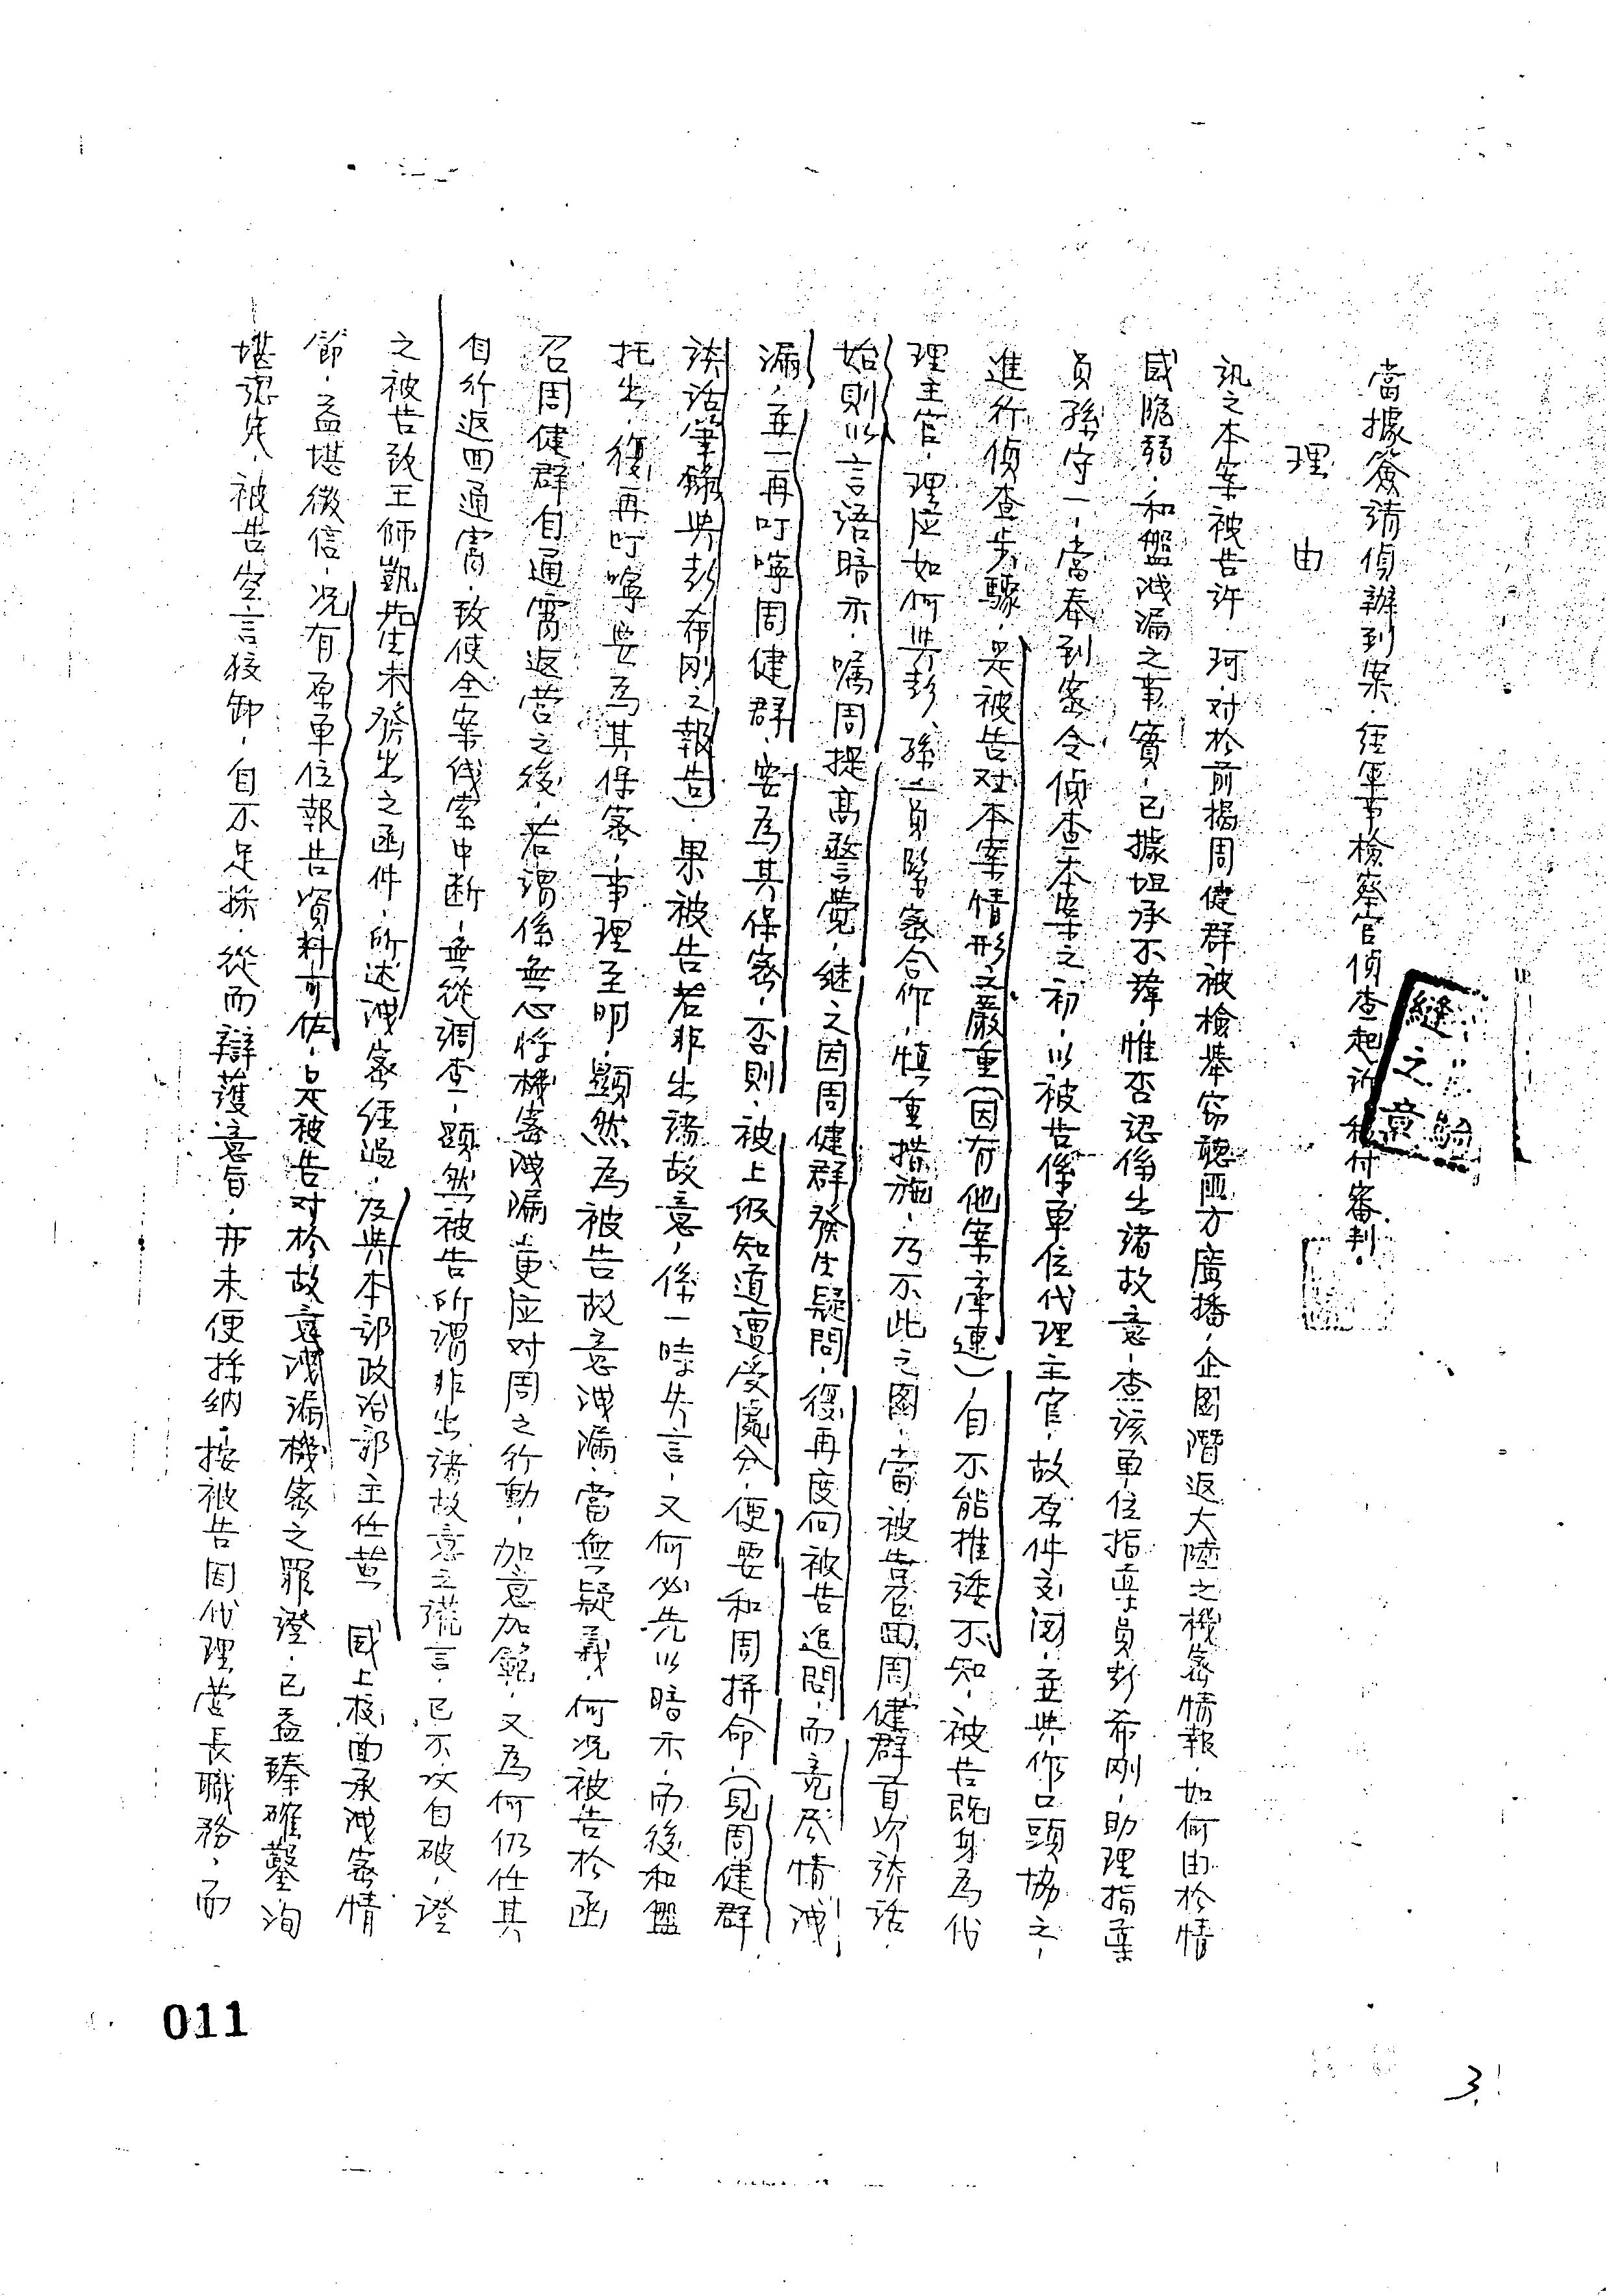 當據簽請偵辦到案，經軍事檢察官偵查起訴移付審判。
理由
訊之本案被告許珂，对於前揭周健群被檢舉窃聽匪方廣播，企图潛返大陸之機密情報，如何由於情
感脆弱，和盤洩漏之事實，已據坦承不諱，惟否認係出諸故意，查該单位指導員彭希刚，助理指導
員孫守一，當奉到密令偵查本案之初，以被告係单位代理主官，故原件交閱，並与作口頭協之，
進行偵查步驟，是被告对本案情形之嚴重（因有他案牽連），自不能推諉不知，被告既身為代
理主官，理应如何与彭、孫二員緊密合作，慎重措施，乃不此之图，當被告召回周健群首次談話，
始則以言語暗示，囑周提高警覺，继之因周健群發生疑問，復再度向被告追問，而竟尽情洩
漏，並一再叮嚀周健群，要為其保密，否則，被上级知道遭受處分，便要和周拼命，（見周健群
談話筆錄与彭希刚之報告）。果被告若非出諸故意，係一時失言，又何必先以暗示，而後和盤
托出，復再叮嚀要為其保密，事理至明，顯然為被告故意洩漏，當無疑義，何况被告於函
召周健群自通霄返营之後，若謂係無心将機密洩漏，更应对周之行動，加意加範，又為何仍任其
自行返回通霄，致使全案线索中断，無從調查，顯然被告所謂非出諸故意之謊言，已不攻自破，證
之被告致王師凱先生未發出之函件，所述洩密经過，及與本部政治部主任黄　國上校面承洩密情
節，益堪徵信，况有原单位報告資料可佐，是被告对於故意洩漏機密之罪證，已益臻確鑿，洵
堪認定，被告空言狡卸，自不足採，從而辯護意旨，亦未便採納。按被告因代理营長職務，而
縫之章
011
3.